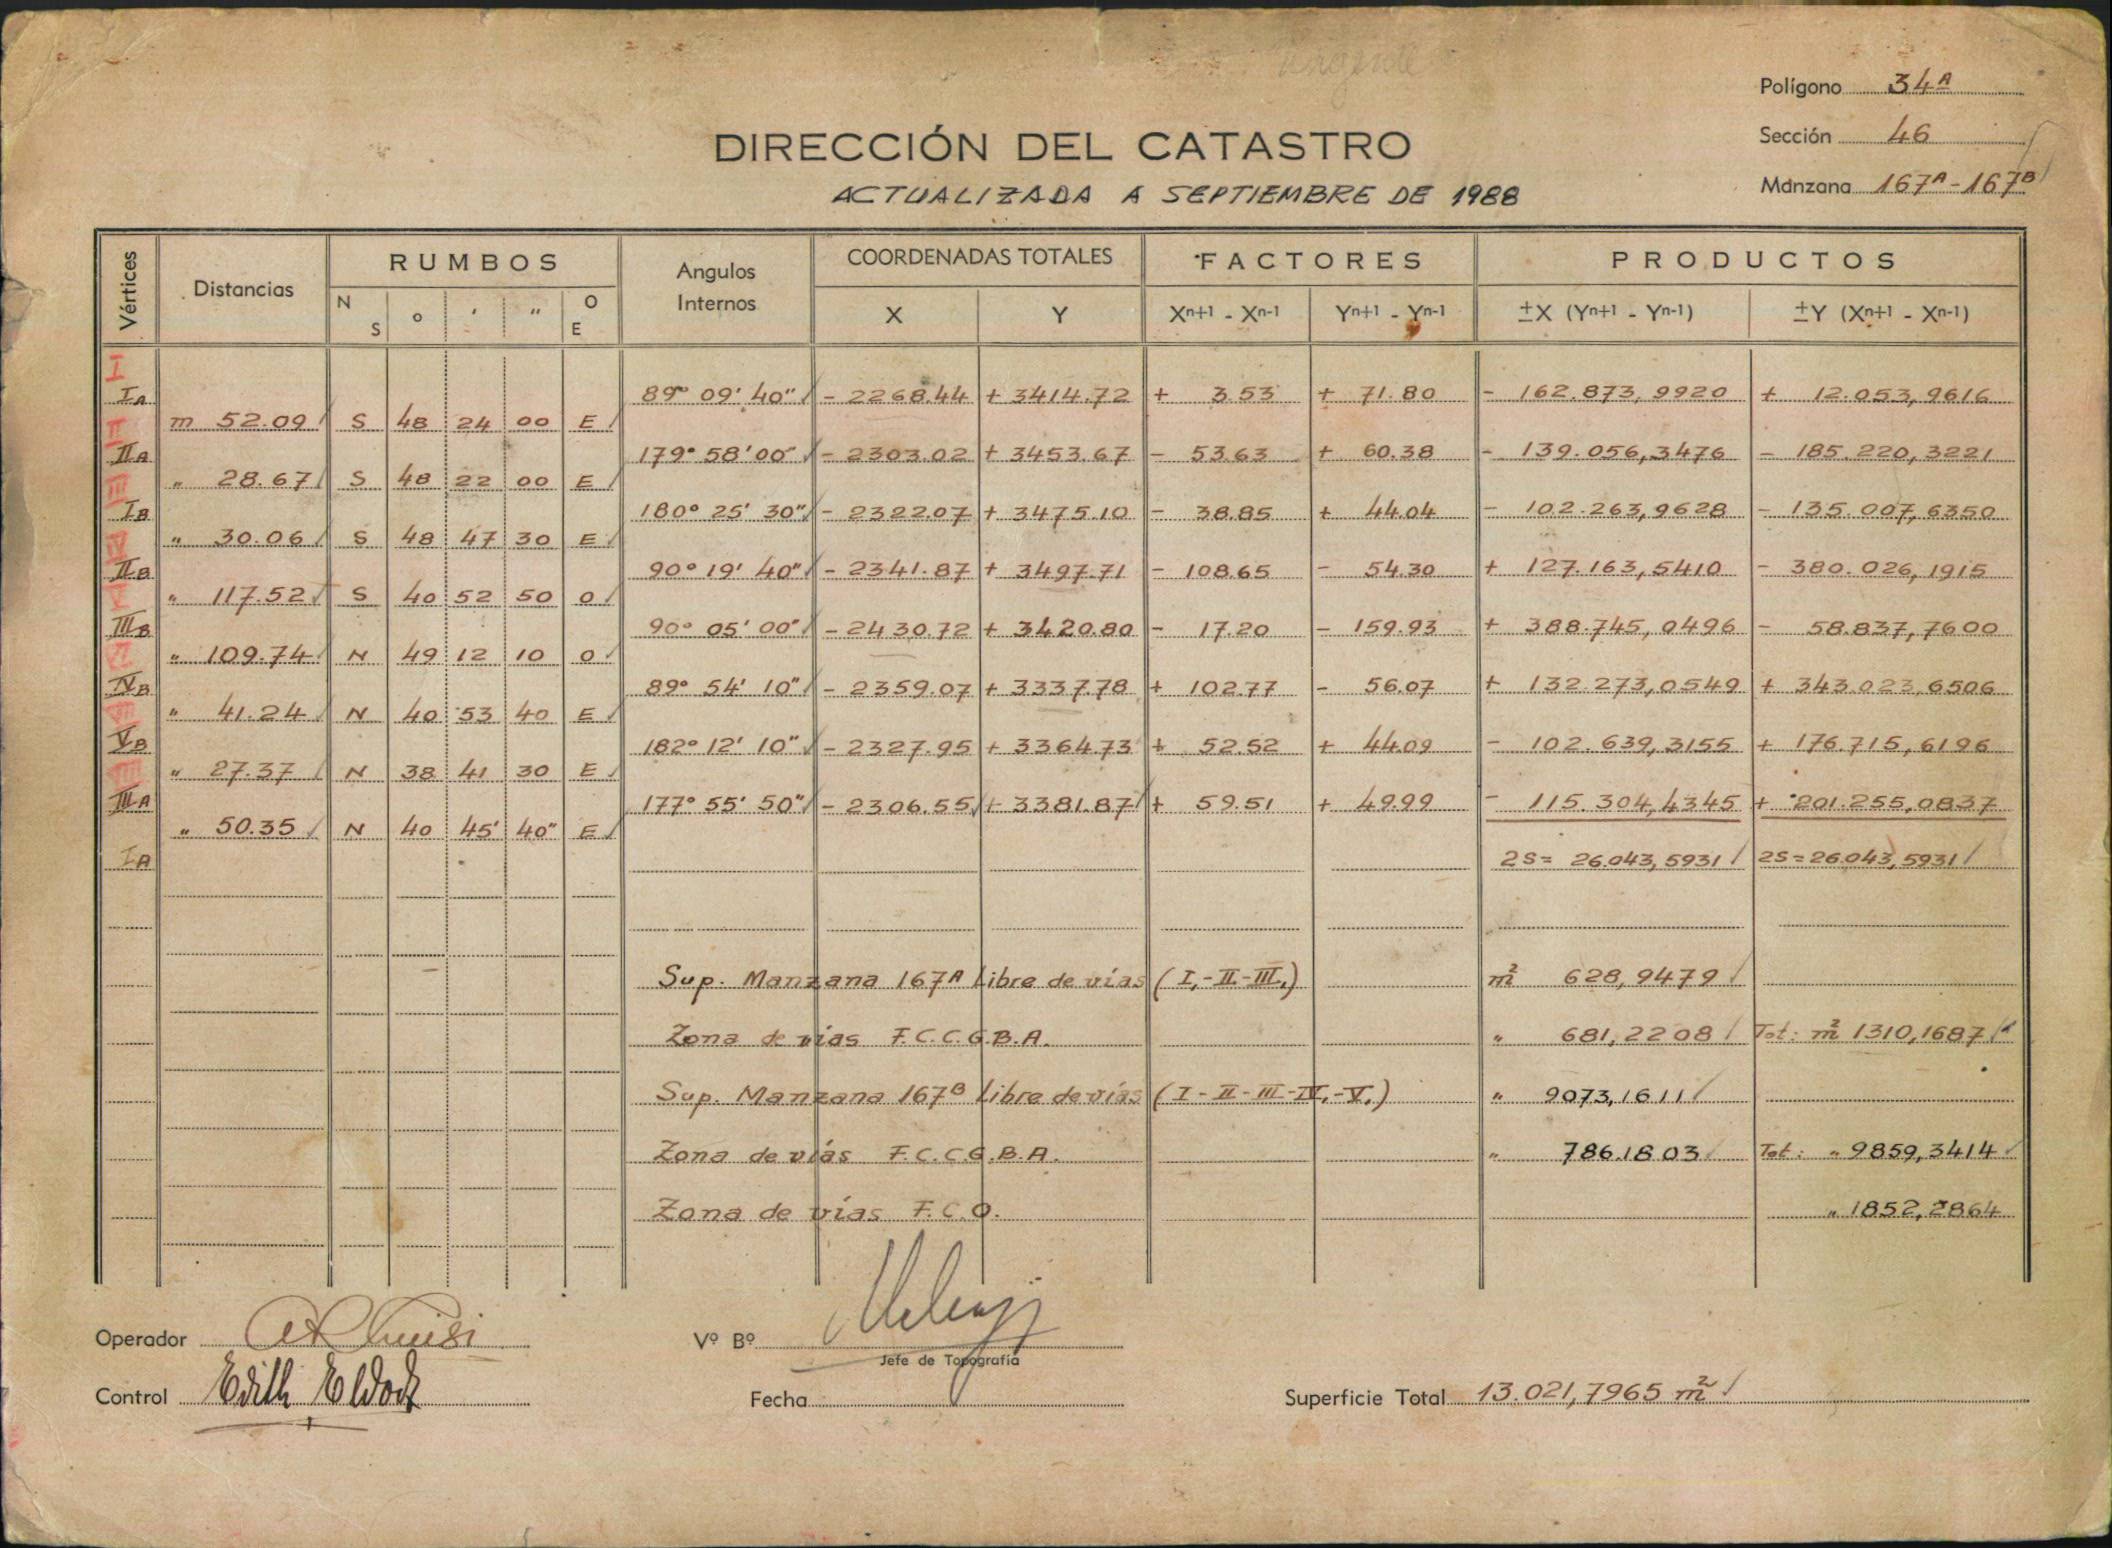 Polígono 34A
Sección 46
Manzana 167A-167B
DIRECCIÓN DEL CATASTRO
ACTUALIZADA A SEPTIEMBRE DE 1988
Vértices Distancias RUMBOS Angulos Internos COORDENADAS TOTALES FACTORES PRODUCTOS
N S ° ' " O E X Y Xn+1 - Xn-1 Yn+1 - Yn-1 ±X (Yn+1 - Yn-1) ±Y (Xn+1 - Xn-1)
I
IA 89° 09' 40" - 2268.44 + 3414.72 + 3.53 + 71.80 - 162.873,9920 + 12.053,9616
m 52.09 S 48 24 00 E
II
IIA 179° 58' 00" - 2303.02 + 3453.67 - 53.63 + 60.38 - 139.056,3476 - 185.220,3221
" 28.67 S 48 22 00 E
III
IB 180° 25' 30" - 2322.07 + 3475.10 - 38.85 + 44.04 - 102.263,9628 - 135.007,6350
" 30.06 S 48 47 30 E
IV
IIB 90° 19' 40" - 2341.87 + 3497.71 - 108.65 - 54.30 + 127.163,5410 - 380.026,1915
" 117.52 S 40 52 50 O
V
IIIB 90° 05' 00" - 2430.72 + 3420.80 - 17.20 - 159.93 + 388.745,0496 - 58.837,7600
" 109.74 N 49 12 10 O
VI
IVB 89° 54' 10" - 2359.07 + 3337.78 + 102.77 - 56.07 + 132.273,0549 + 343.023,6506
" 41.24 N 40 53 40 E
VII
VB 182° 12' 10" - 2327.95 + 3364.73 + 52.52 + 44.09 - 102.639,3155 + 176.715,6196
" 27.37 N 38 41 30 E
VIII
IIIA 177° 55' 50" - 2306.55 + 3381.87 + 59.51 + 49.99 - 115.304,4345 + 201.255,0837
" 50.35 N 40 45' 40" E
IA 2S= 26.043,5931 2S=26.043,5931
Sup. Manzana 167A Libre de vías (I,-II-III,) m² 628,9479
Zona de vías F.C.C.G.B.A. " 681,2208 Tot: m² 1310,1687
Sup. Manzana 167B Libre de vías (I-II-III-IV,-V,) " 9073,1611
Zona de vías F.C.C.G.B.A. " 786.1803 Tot: " 9859,3414
Zona de vías F.C.O. " 1852,2864
Operador
Vº Bº
Jefe de Topografía
Control Edith
Fecha
Superficie Total 13.021,7965 m²